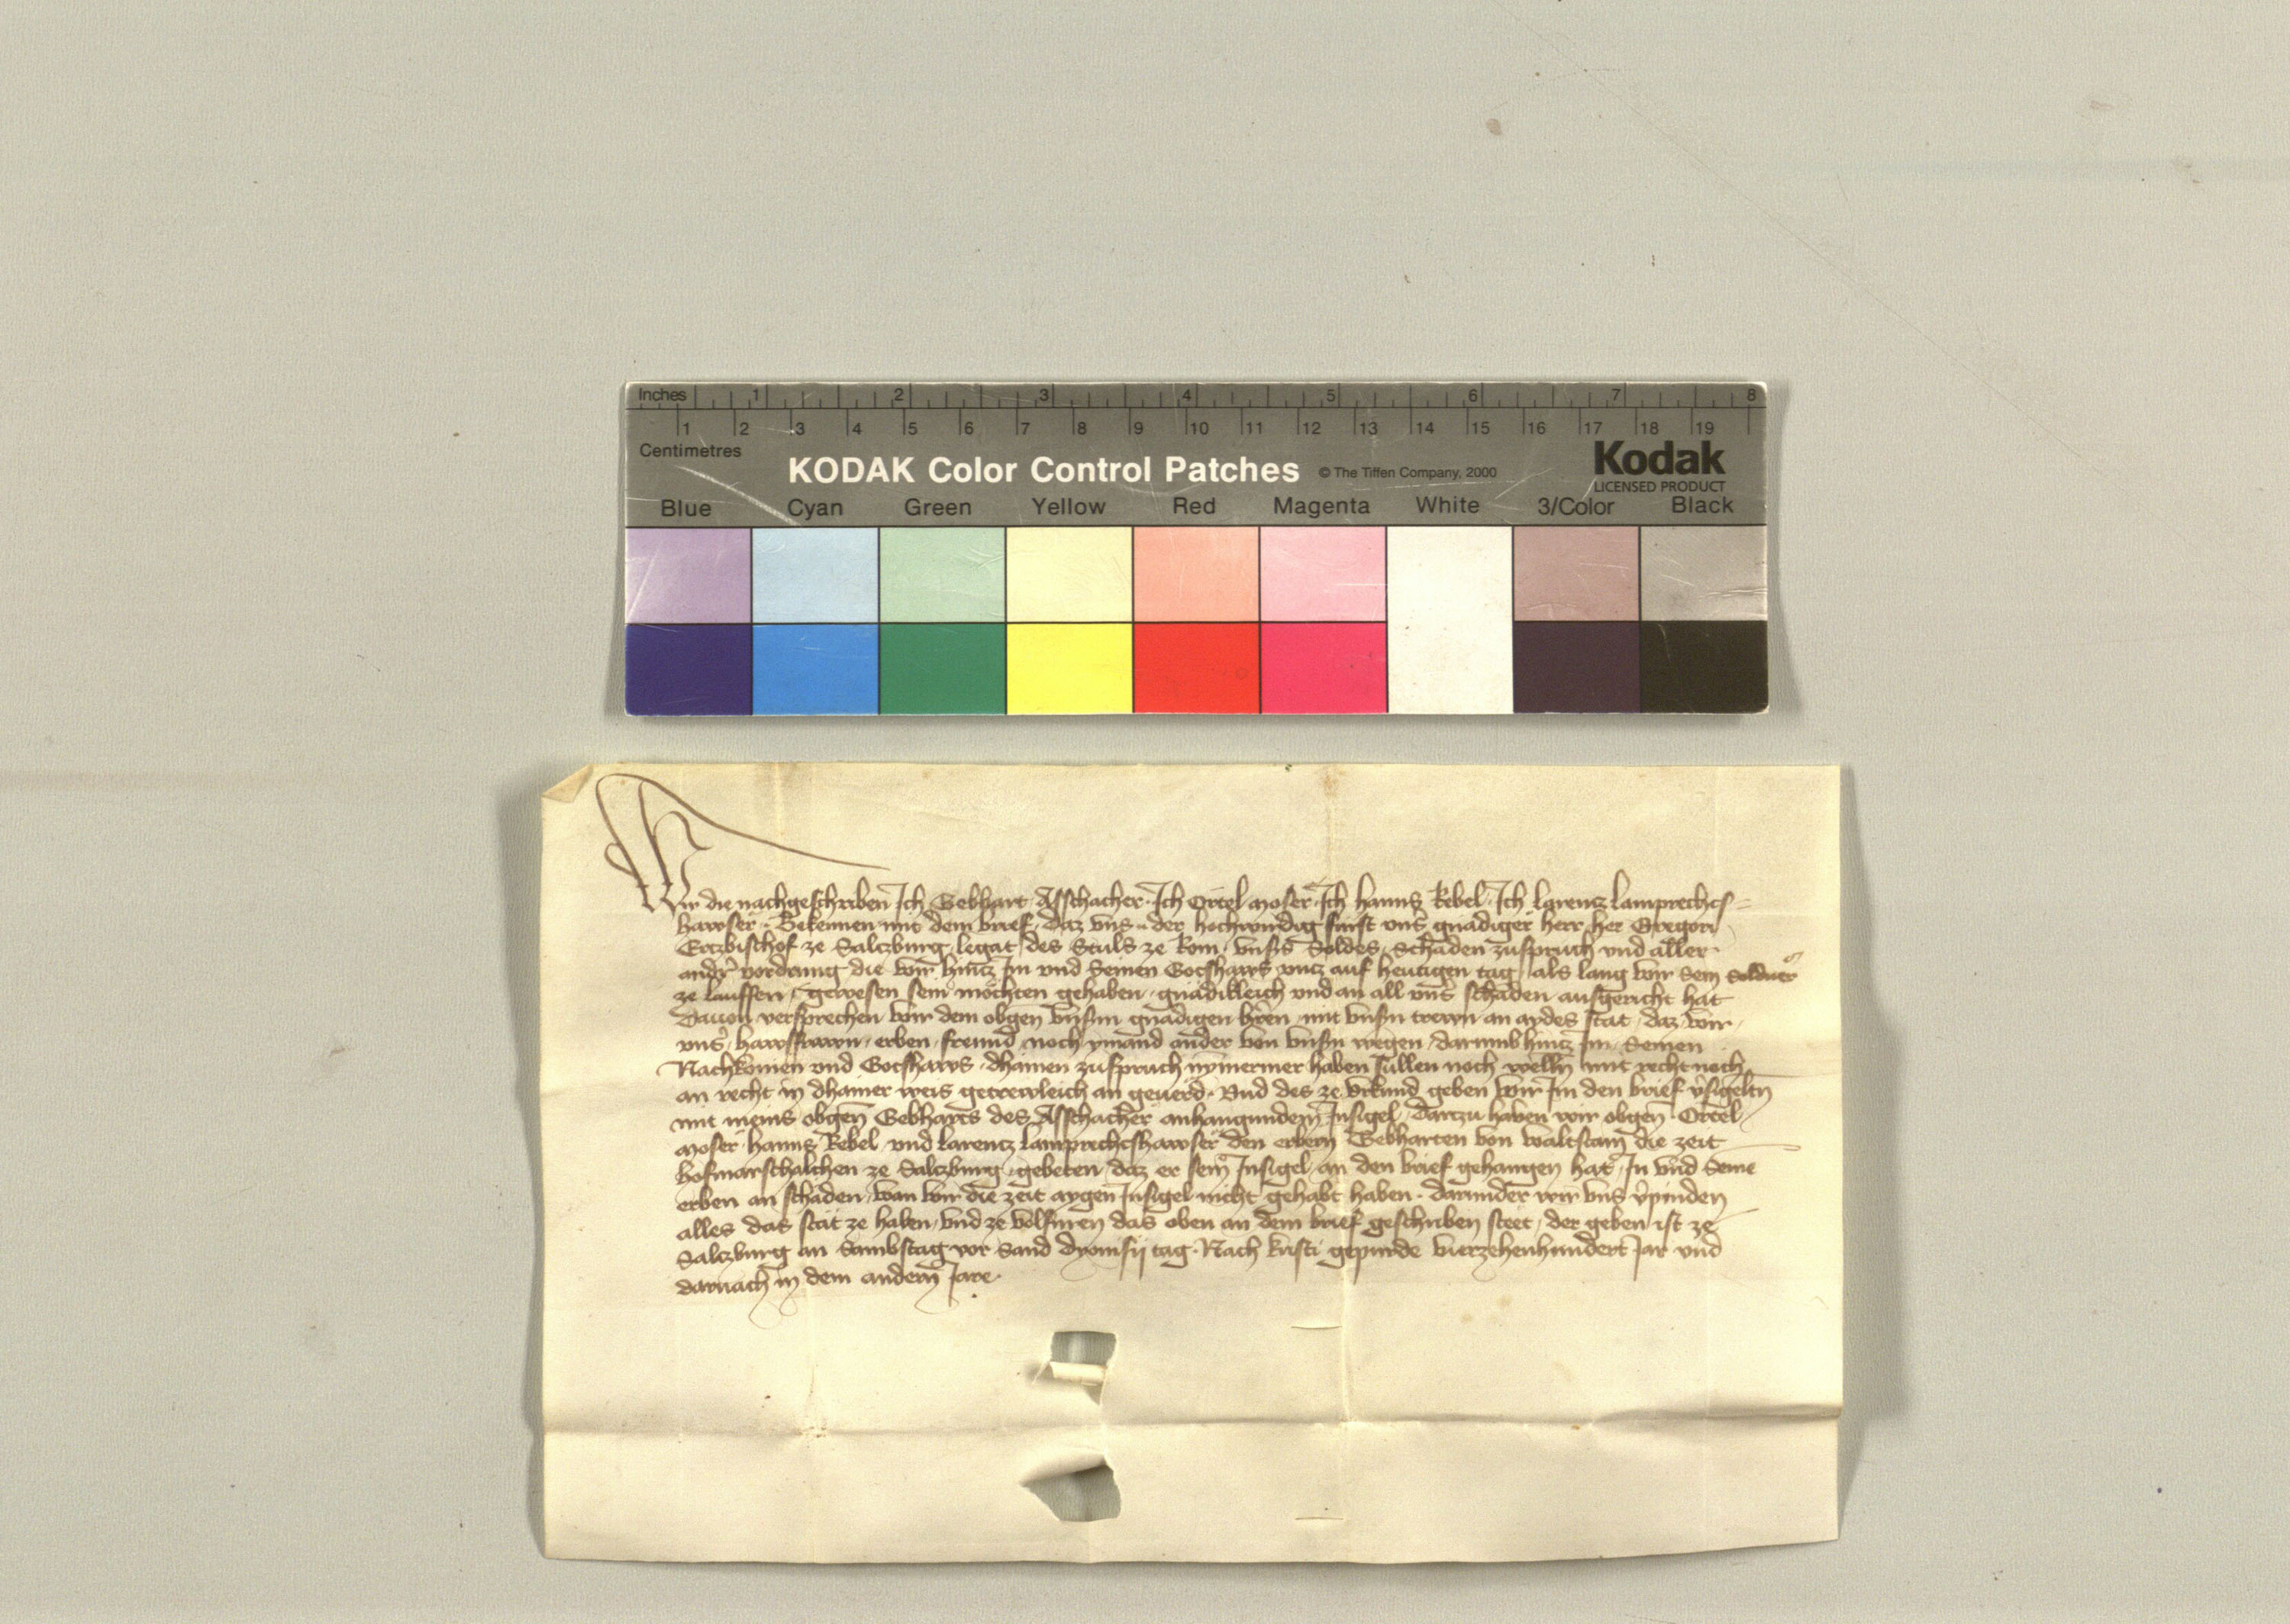 Inches 1 2 3 4 5 6 7 8
1 2 3 4 5 6 7 8 9 10 11 12 13 14 15 16 17 18 19
Centimetres
KODAK Color Control Patches © The Tiffen Company, 2000 Kodak
LICENSED PRODUCT
Blue Cyan Green Yellow Red Magenta White 3/Color Black
Wir die nachgeschriben Ich Gebhart Asschacher Ich Ortel Moser Ich Hanns Rebel Ich Larencz Lamprechcz-
hawser Bekennen mit dem brief daz vns der hochwirdig fürst vnser gnädiger herr her Gregori
Erczbischof ze Salczburg legat des Stuls ze Rom vnsers Soldes Schaden zuspruch vnd aller
andrer vordrung die wir hincz Im vnd Seinen Gotshaws vncz auf hewtigen tag als lang wir sein Soldner
ze Lauffen gewesen sein möchten gehaben gnädikleich vnd an all vnser schäden ausgericht hat
Dauon versprechen wir dem obgen vnserm gnädigen herren mit vnsern trewn an aydes stat daz wir
vnser hawsfrawn erben frewnd noch ymand ander von vnsern wegen darumb hincz Im Seinen
Nachkomen vnd Gotshaws dhainen zuspruch nymermer haben süllen noch welln mit recht noch
an recht in dhainer weis getrewleich an geuerd Vnd des ze vrkund geben wir Im den brief versigelten
mit meins obgen Gebharts des Asschacher anhangundem Insigel Darczu haben wir obgen Ortel
Moser Hanns Rebel vnd Larencz Lamprechczhawser den erbern Gebharten von Waltstain die zeit
hofmarschalchen ze Salczburg gebeten daz er sein Insigel an den brief gehangen hat In vnd Seinen
erben an schaden wan wir die zeit aygen Insigel nicht gehabt haben darunder wir vns verpinden
alles das stät ze haben vnd ze volfüren das oben an dem brief geschriben steet der geben ist ze
Salczburg an Sambstag vor Sand Dyonisii tag Nach kristi gepurde vierzehenhundert Jar vnd
darnach in dem andern Jare